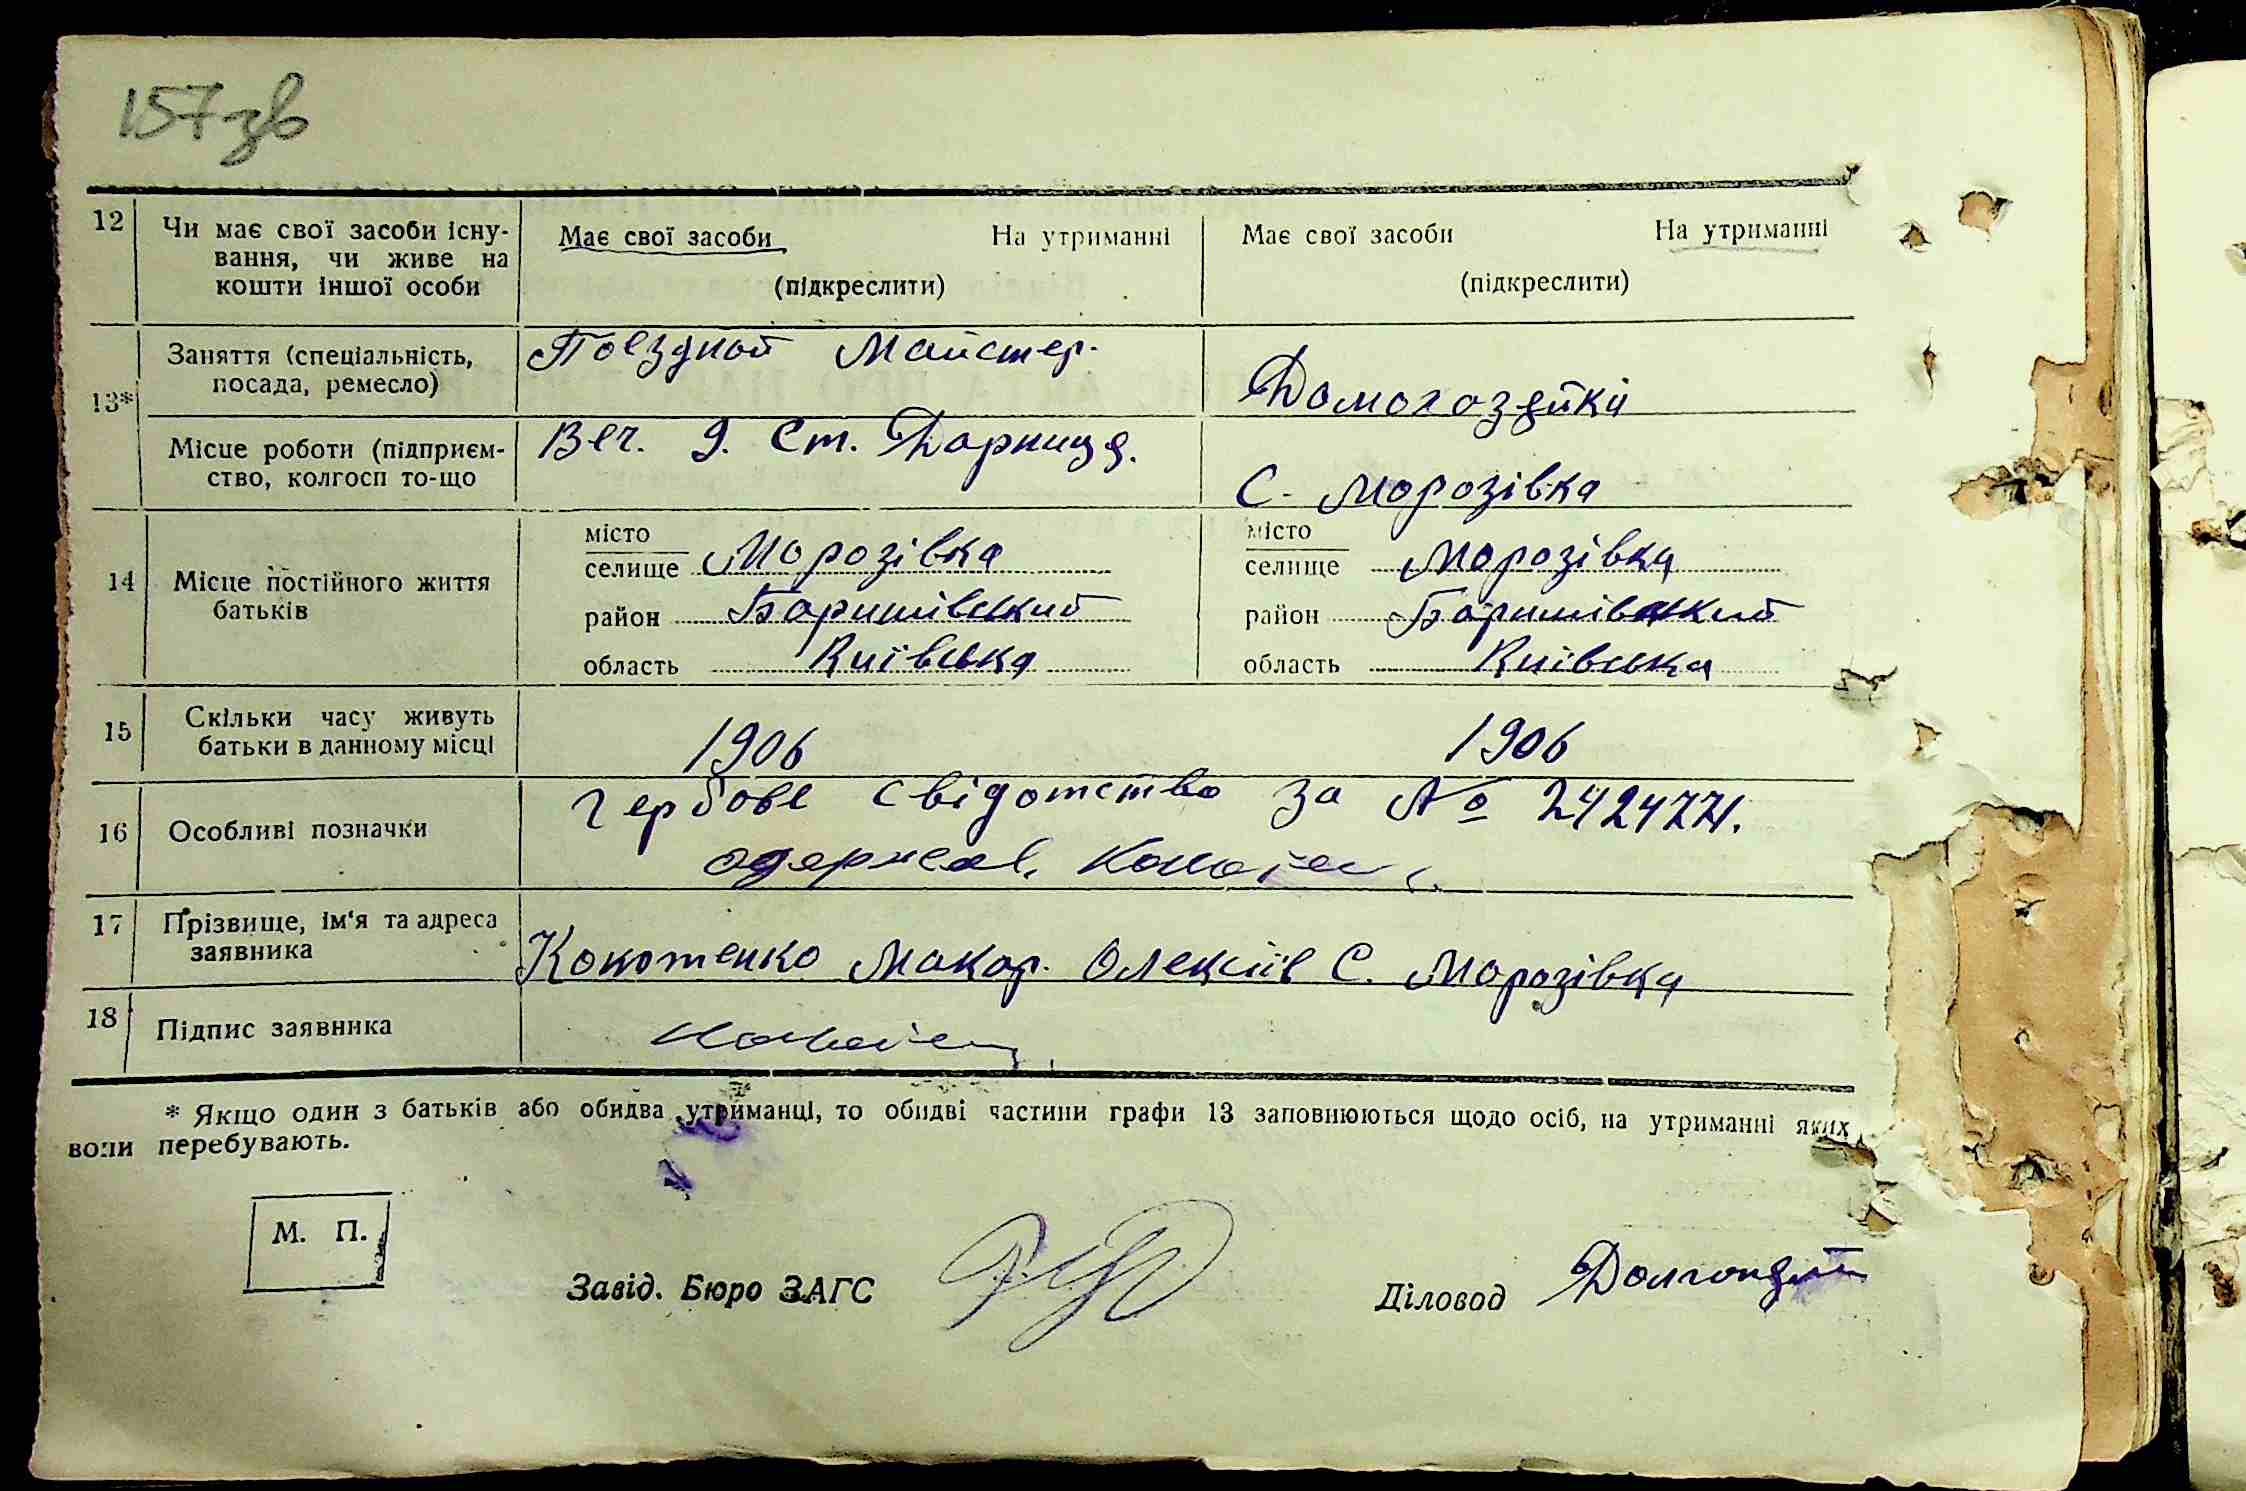 157 зв
12 Чи має свої засоби існу-
вання, чи живе на
кошти іншої особи
Має свої засоби На утриманні
(підкреслити)
Має свої засоби На утриманні
(підкреслити)
13*
Заняття (спеціальність,
посада, ремесло)
Поездной Майстер.
Домогазяйка
Місце роботи (підприєм-
ство, колгосп то-що
9. Ст. Дарниця.
С. Морозівка
14 Місце постійного життя
батьків
місто
селище Морозівка
район Баришівський
область Київська
місто
селище Морозівка
район Баришівський
область Київська
15 Скільки часу живуть
батьки в данному місці
1906
1906
16 Особливі позначки
Гербове свідотство за № 2424771.
одержав.
17 Прізвище, ім'я та адреса
заявника
Кокотенко Макар. Олексіїв С. Морозівка
18 Підпис заявника
* Якщо один з батьків або обидва утриманці, то обидві частини графи 13 заповнюються щодо осіб, на утриманні яких
вони перебувають.
М. П.
Завід. Бюро ЗАГС
Діловод